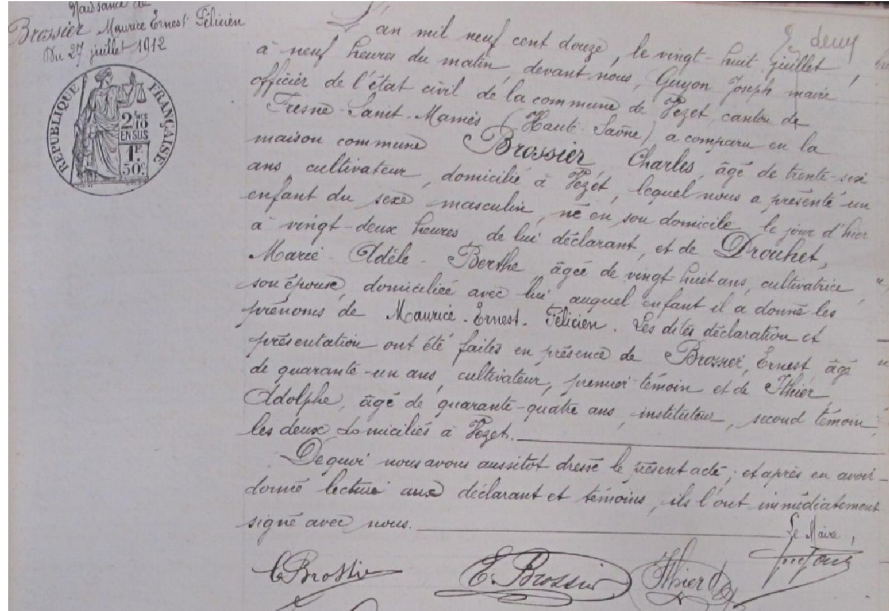 Naissance de
Brossier Maurice Ernest Félicien
Du 27 juillet 1912
RÉPUBLIQUE FRANÇAISE
2/10
EN SUS
1F
50c
L'an mil neuf cent douze, le vingt-huit juillet,
à neuf heures du matin, devant nous, Guyon Joseph maire
officier de l'état civil de la commune de Vezet canton de
Fresne-Saint-Mamès (Haute-Saône) a comparu en la
maison commune Brossier Charles, âgé de trente-six
ans cultivateur, domicilié à Vezet, lequel nous a présenté un
enfant du sexe masculin, né en son domicile le jour d'hier
à vingt-deux heures de lui déclarant, et de Drouhet,
Marie-Adèle-Berthe âgée de vingt huit ans, cultivatrice,
son épouse, domiciliée avec lui auquel enfant il a donné les
prénoms de Maurice-Ernest-Félicien. Les dites déclaration et
présentation ont été faites en présence de Brossier, Ernest, âgé
de quarante-un ans, cultivateur, premier témoin et de Ithier,
Adolphe, âgé de quarante-quatre ans, instituteur, second témoin,
les deux domiciliés à Vezet.
De quoi nous avons aussitôt dressé le présent acte; et après en avoir
donné lecture aux déclarant et témoins, ils l'ont immédiatement
signé avec nous.
Le Maire,
C Brossier E. Brossier Ithier